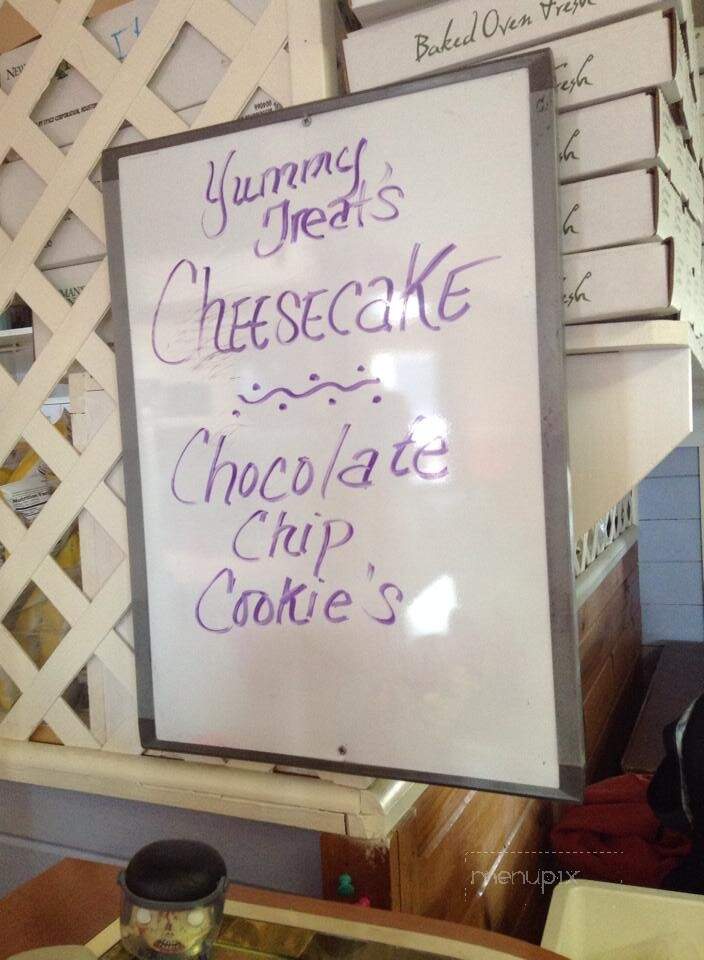 Baked Oven Fresh
esh
h
h
esh
Yummy
Treat's
CHEESECaKE
Chocolate
Chip
Cookie's
menupix